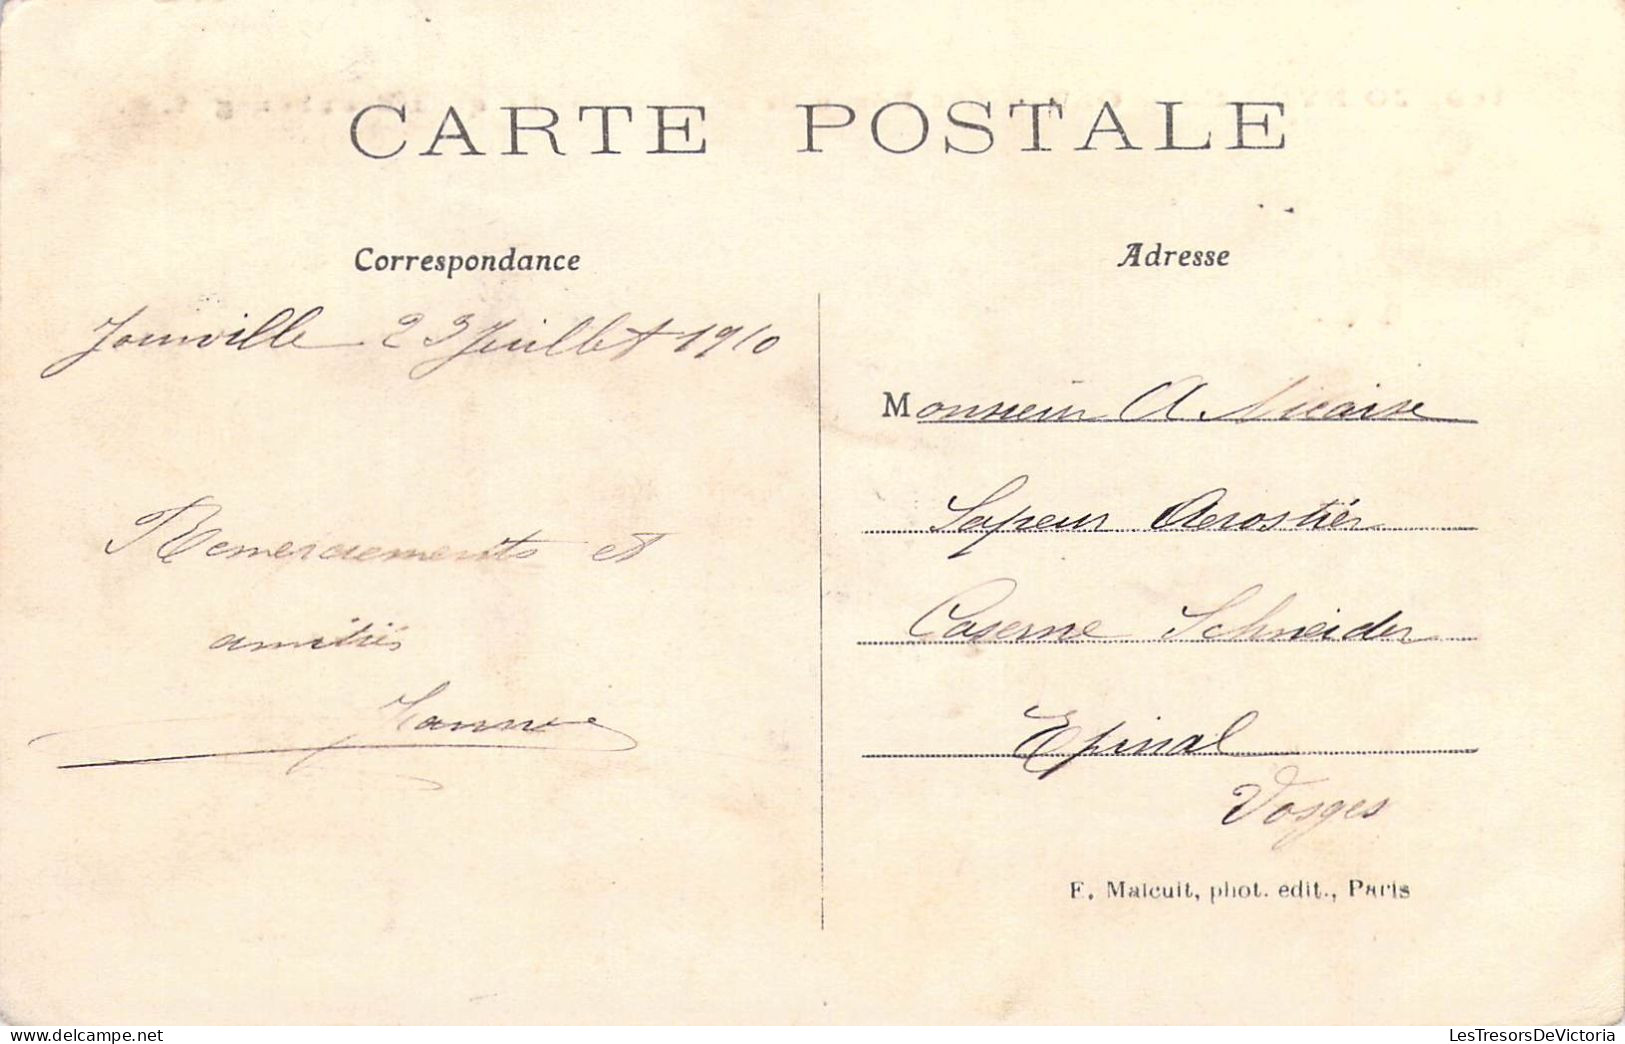 CARTE POSTALE
Correspondance
Joinville 23 Juillet 1910
Remerciements et
amitiés
Adresse
Monsieur A. Nicaise
Sapeur Aerostier
Caserne Schneider
Epinal
Vosges
E. Malcuit, phot. edit., Paris
delcampe.net
LesTresorsDeVictoria